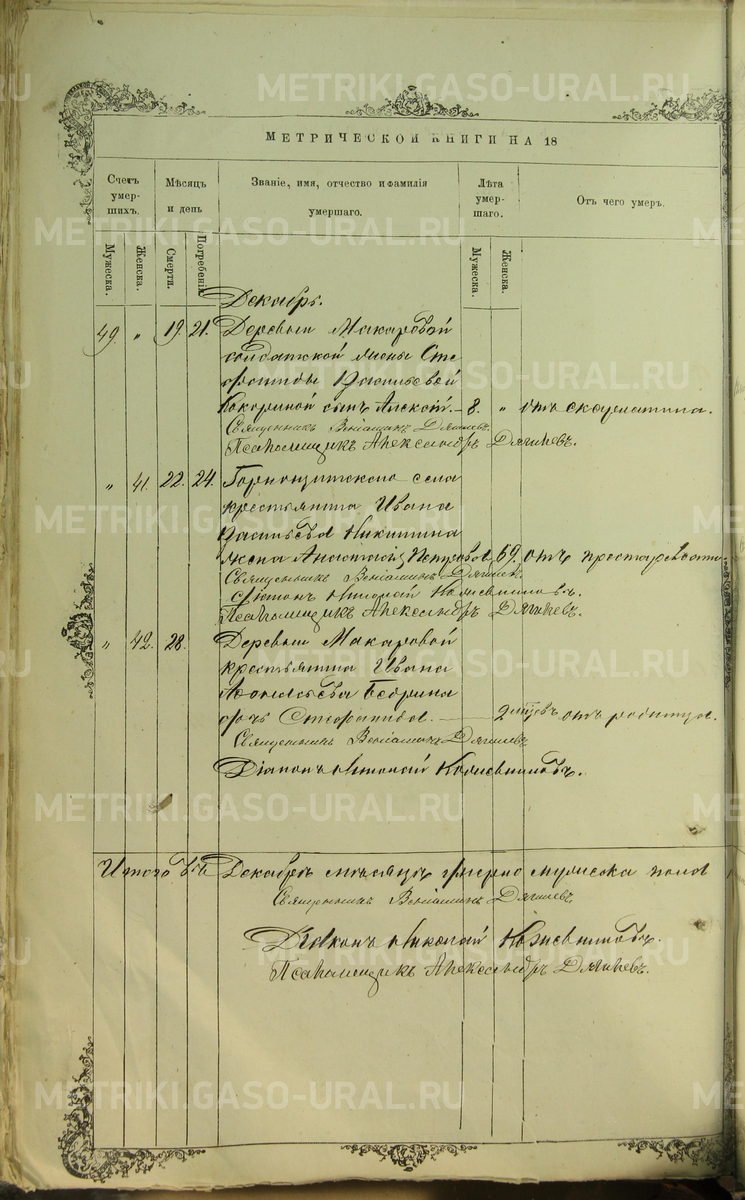 МЕТРИЧЕСКОЙ КНИГИ НА 18
Счетъ умершихъ. Мѣсяцъ и день Званіе, имя, отчество и фамилія умершаго. Лѣта умершаго. Отъ чего умеръ.
Мужеска. Женска. Смерти. Погребенія Мужеска. Женска.
Декабрь.
49. " 19. 21. Деревни Макаровой
солдатской жены Сте
фаниды Васильевой
Кокориной сынъ Алексѣй. 8. " отъ скарлатина.
Священникъ Веніаминъ Дягилевъ.
Псаломщикъ Александръ Дягилевъ.
" 41. 22. 24. Горнощитскаго села
крестьянина Ивана
Васильева Никитина
жена Анастасія Петровна 69. отъ престарѣлости.
Священникъ Веніаминъ Дягилевъ
Діаконъ Николай Кожевниковъ.
Псаломщикъ Александръ Дягилевъ.
" 42. 28. Деревни Макаровой
крестьянина Ивана
дочь Стефанида. 2 отъ родимца.
Священникъ Веніаминъ Дягилевъ
Діаконъ Николай Кожевниковъ.
Итого въ Декабрѣ мѣсяцѣ умерло мужеска пола
Священникъ Веніаминъ Дягилевъ
Діаконъ Николай Кожевниковъ.
Псаломщикъ Александръ Дягилевъ.
METRIKI.GASO-URAL.RU